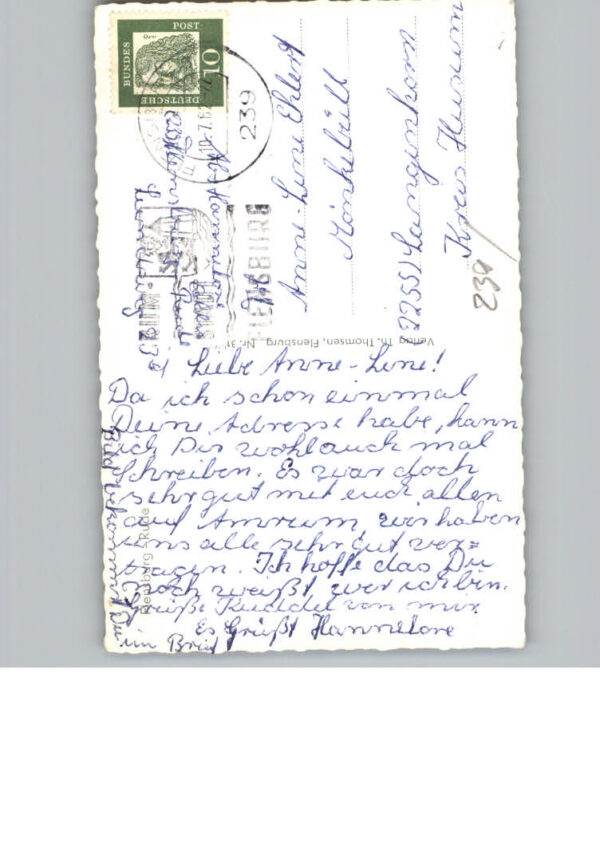 Liebe Anne-Lene!
Da ich schon einmal
Deine Adresse habe, kann
ich Dir wohl auch mal
schreiben. Es war doch
sehr gut mit euch allen
auf Amrum, wir haben
uns alle sehr gut ver=
tragen. Ich hoffe das Du
noch weißt wer ich bin.
Grüße Kuddel von mir
Es Grüßt Hannelore
Bild bekommst Du
im Brief
Anne-Lene Ehlert
Mönkebüll
22551 Langenhorn
Kreis Husum
239
BUNDES
POST
DEUTSCHE
10
239
FLENSBURG
Verlag Th. Thomsen, Flensburg Nr. 31
Flensburg - Rude